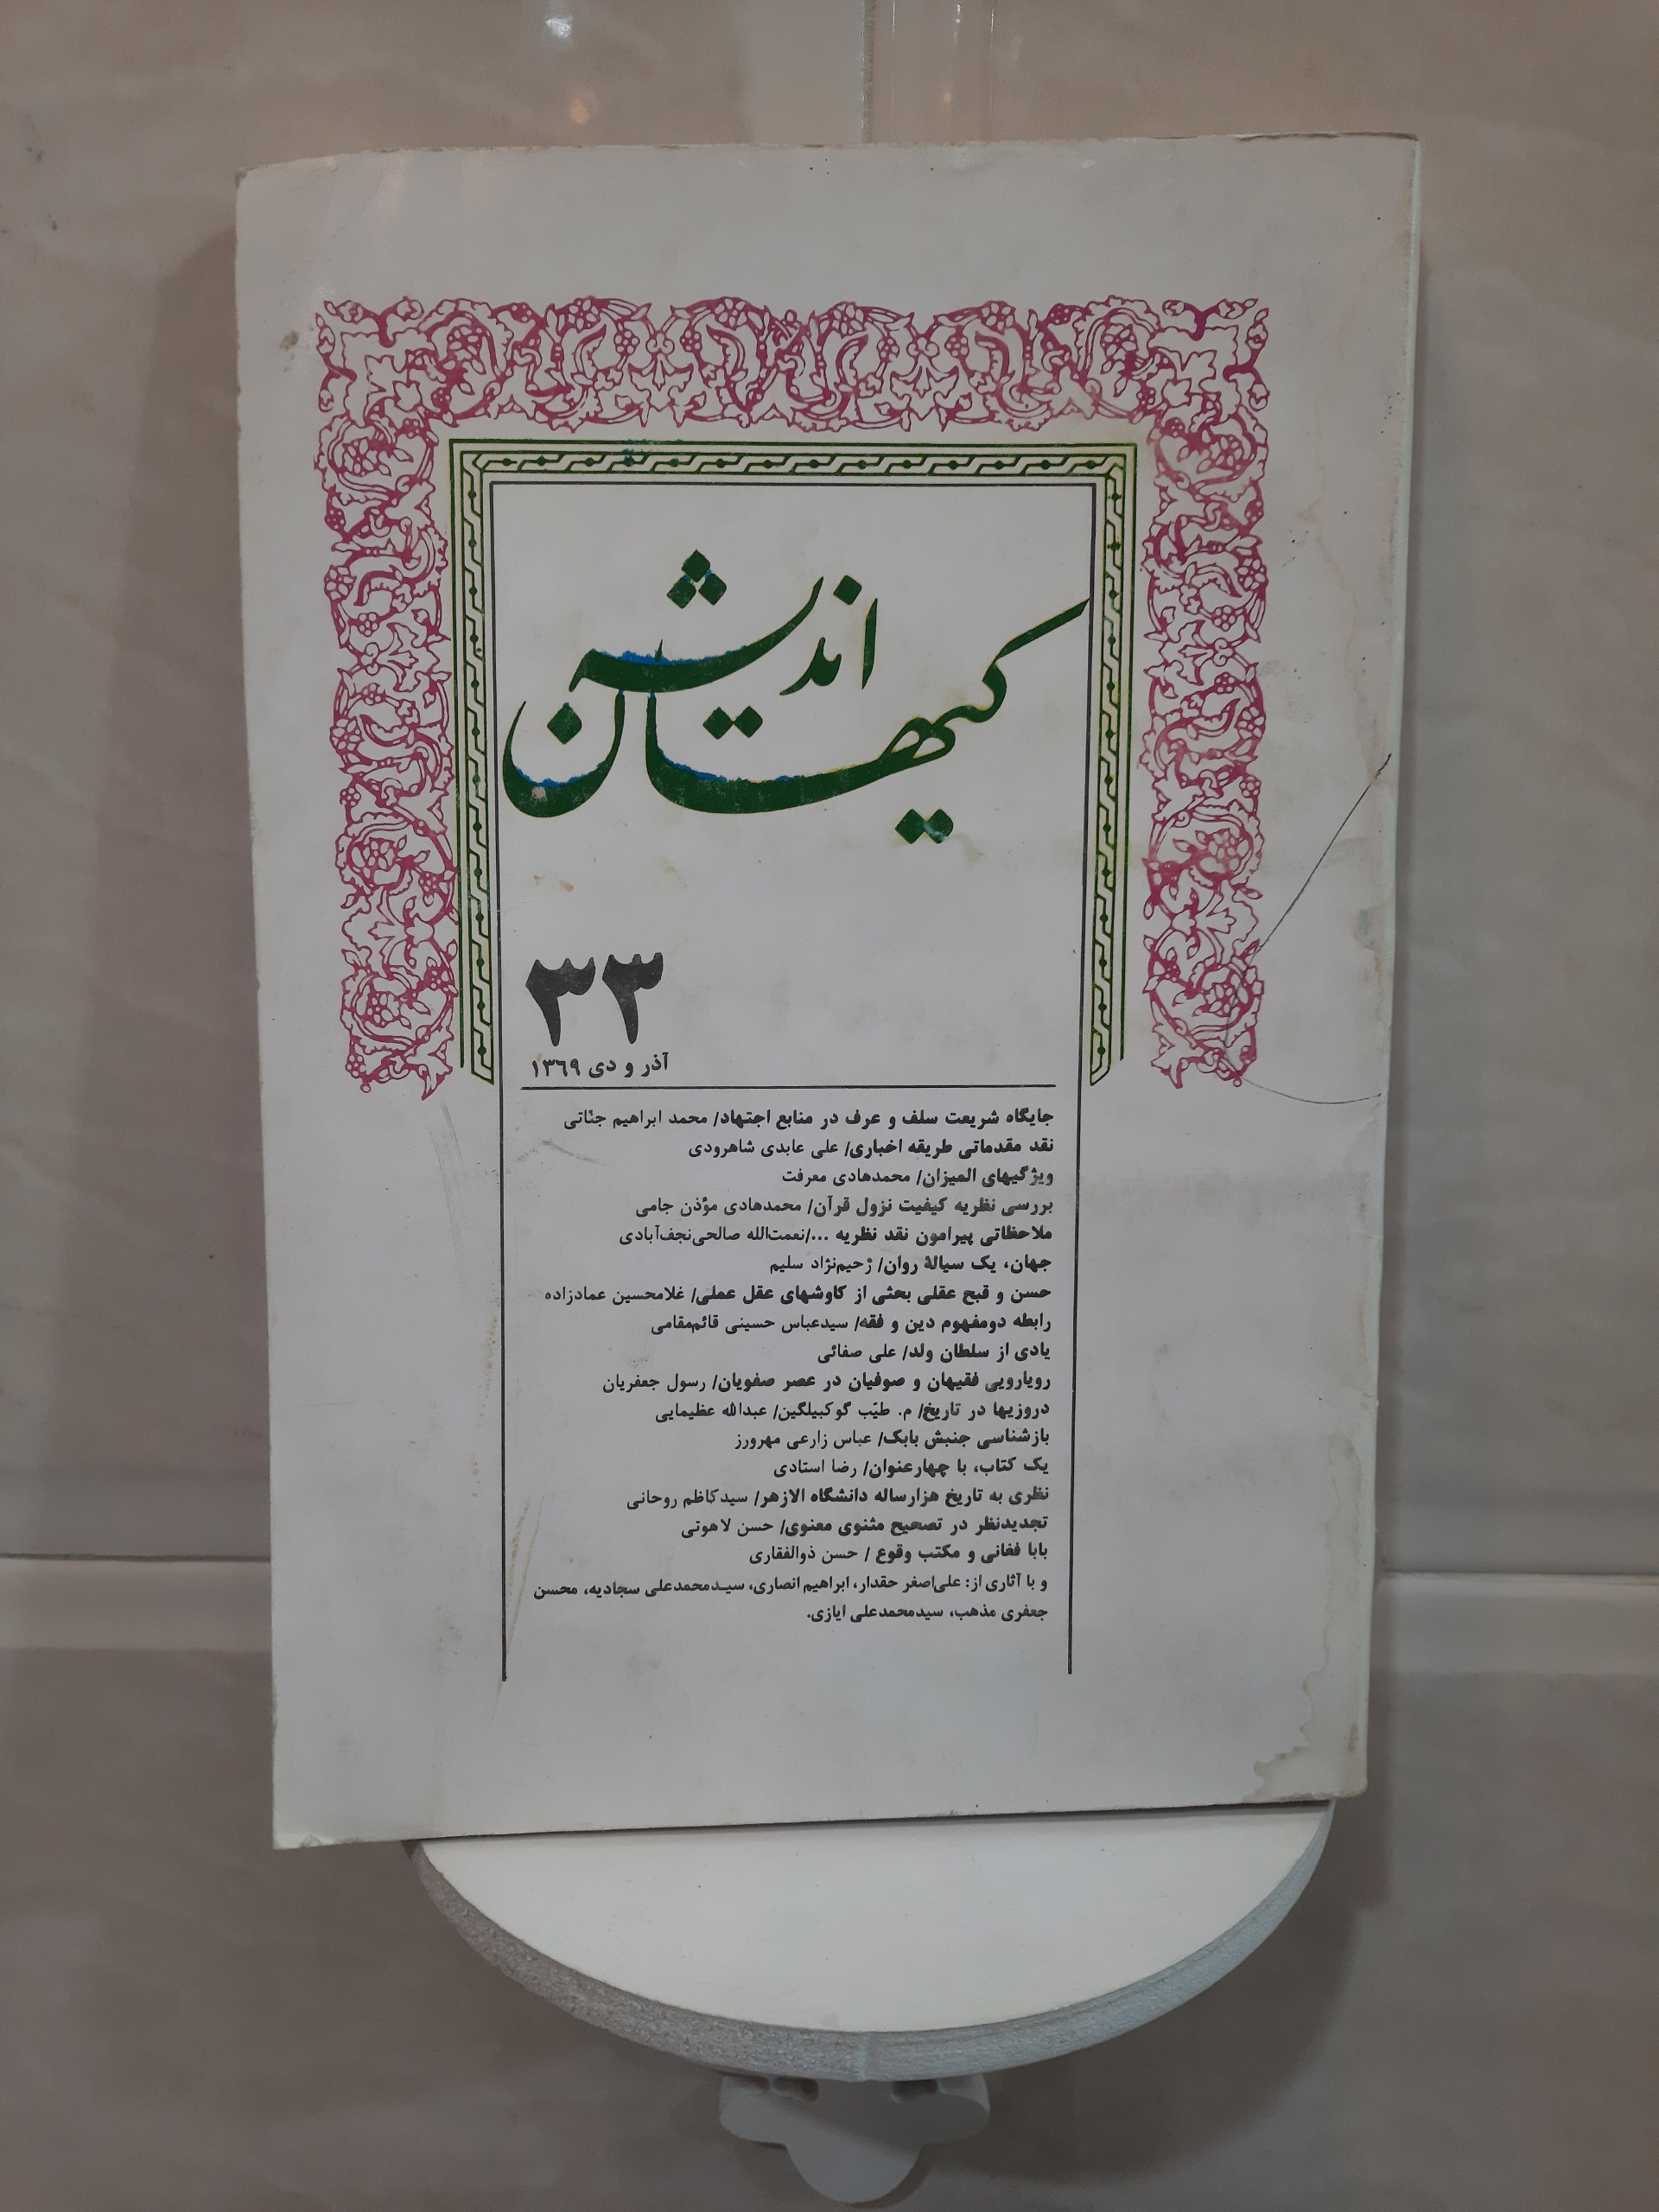 کیهان اندیشه
۳۳
آذر و دی ۱۳۶۹
جایگاه شریعت سلف و عرف در منابع اجتهاد/ محمد ابراهیم جنّاتی
نقد مقدماتی طریقه اخباری/ علی عابدی شاهرودی
ویژگیهای المیزان/ محمدهادی معرفت
بررسی نظریه کیفیت نزول قرآن/ محمدهادی مؤذن جامی
ملاحظاتی پیرامون نقد نظریه .../نعمت‌الله صالحی‌نجف‌آبادی
جهان، یک سیالهٔ روان/ رحیم‌نژاد سلیم
حسن و قبح عقلی بحثی از کاوشهای عقل عملی/ غلامحسین عمادزاده
رابطه دومفهوم دین و فقه/ سیدعباس حسینی قائم‌مقامی
یادی از سلطان ولد/ علی صفائی
رویارویی فقیهان و صوفیان در عصر صفویان/ رسول جعفریان
دروزیها در تاریخ/ م. طیّب گوکبیلگین/ عبدالله عظیمایی
بازشناسی جنبش بابک/ عباس زارعی مهرورز
یک کتاب، با چهارعنوان/ رضا استادی
نظری به تاریخ هزارساله دانشگاه الازهر/ سیدکاظم روحانی
تجدیدنظر در تصحیح مثنوی معنوی/ حسن لاهوتی
بابا فغانی و مکتب وقوع / حسن ذوالفقاری
و با آثاری از: علی‌اصغر حقدار، ابراهیم انصاری، سیدمحمدعلی سجادیه، محسن
جعفری مذهب، سیدمحمدعلی ایازی.